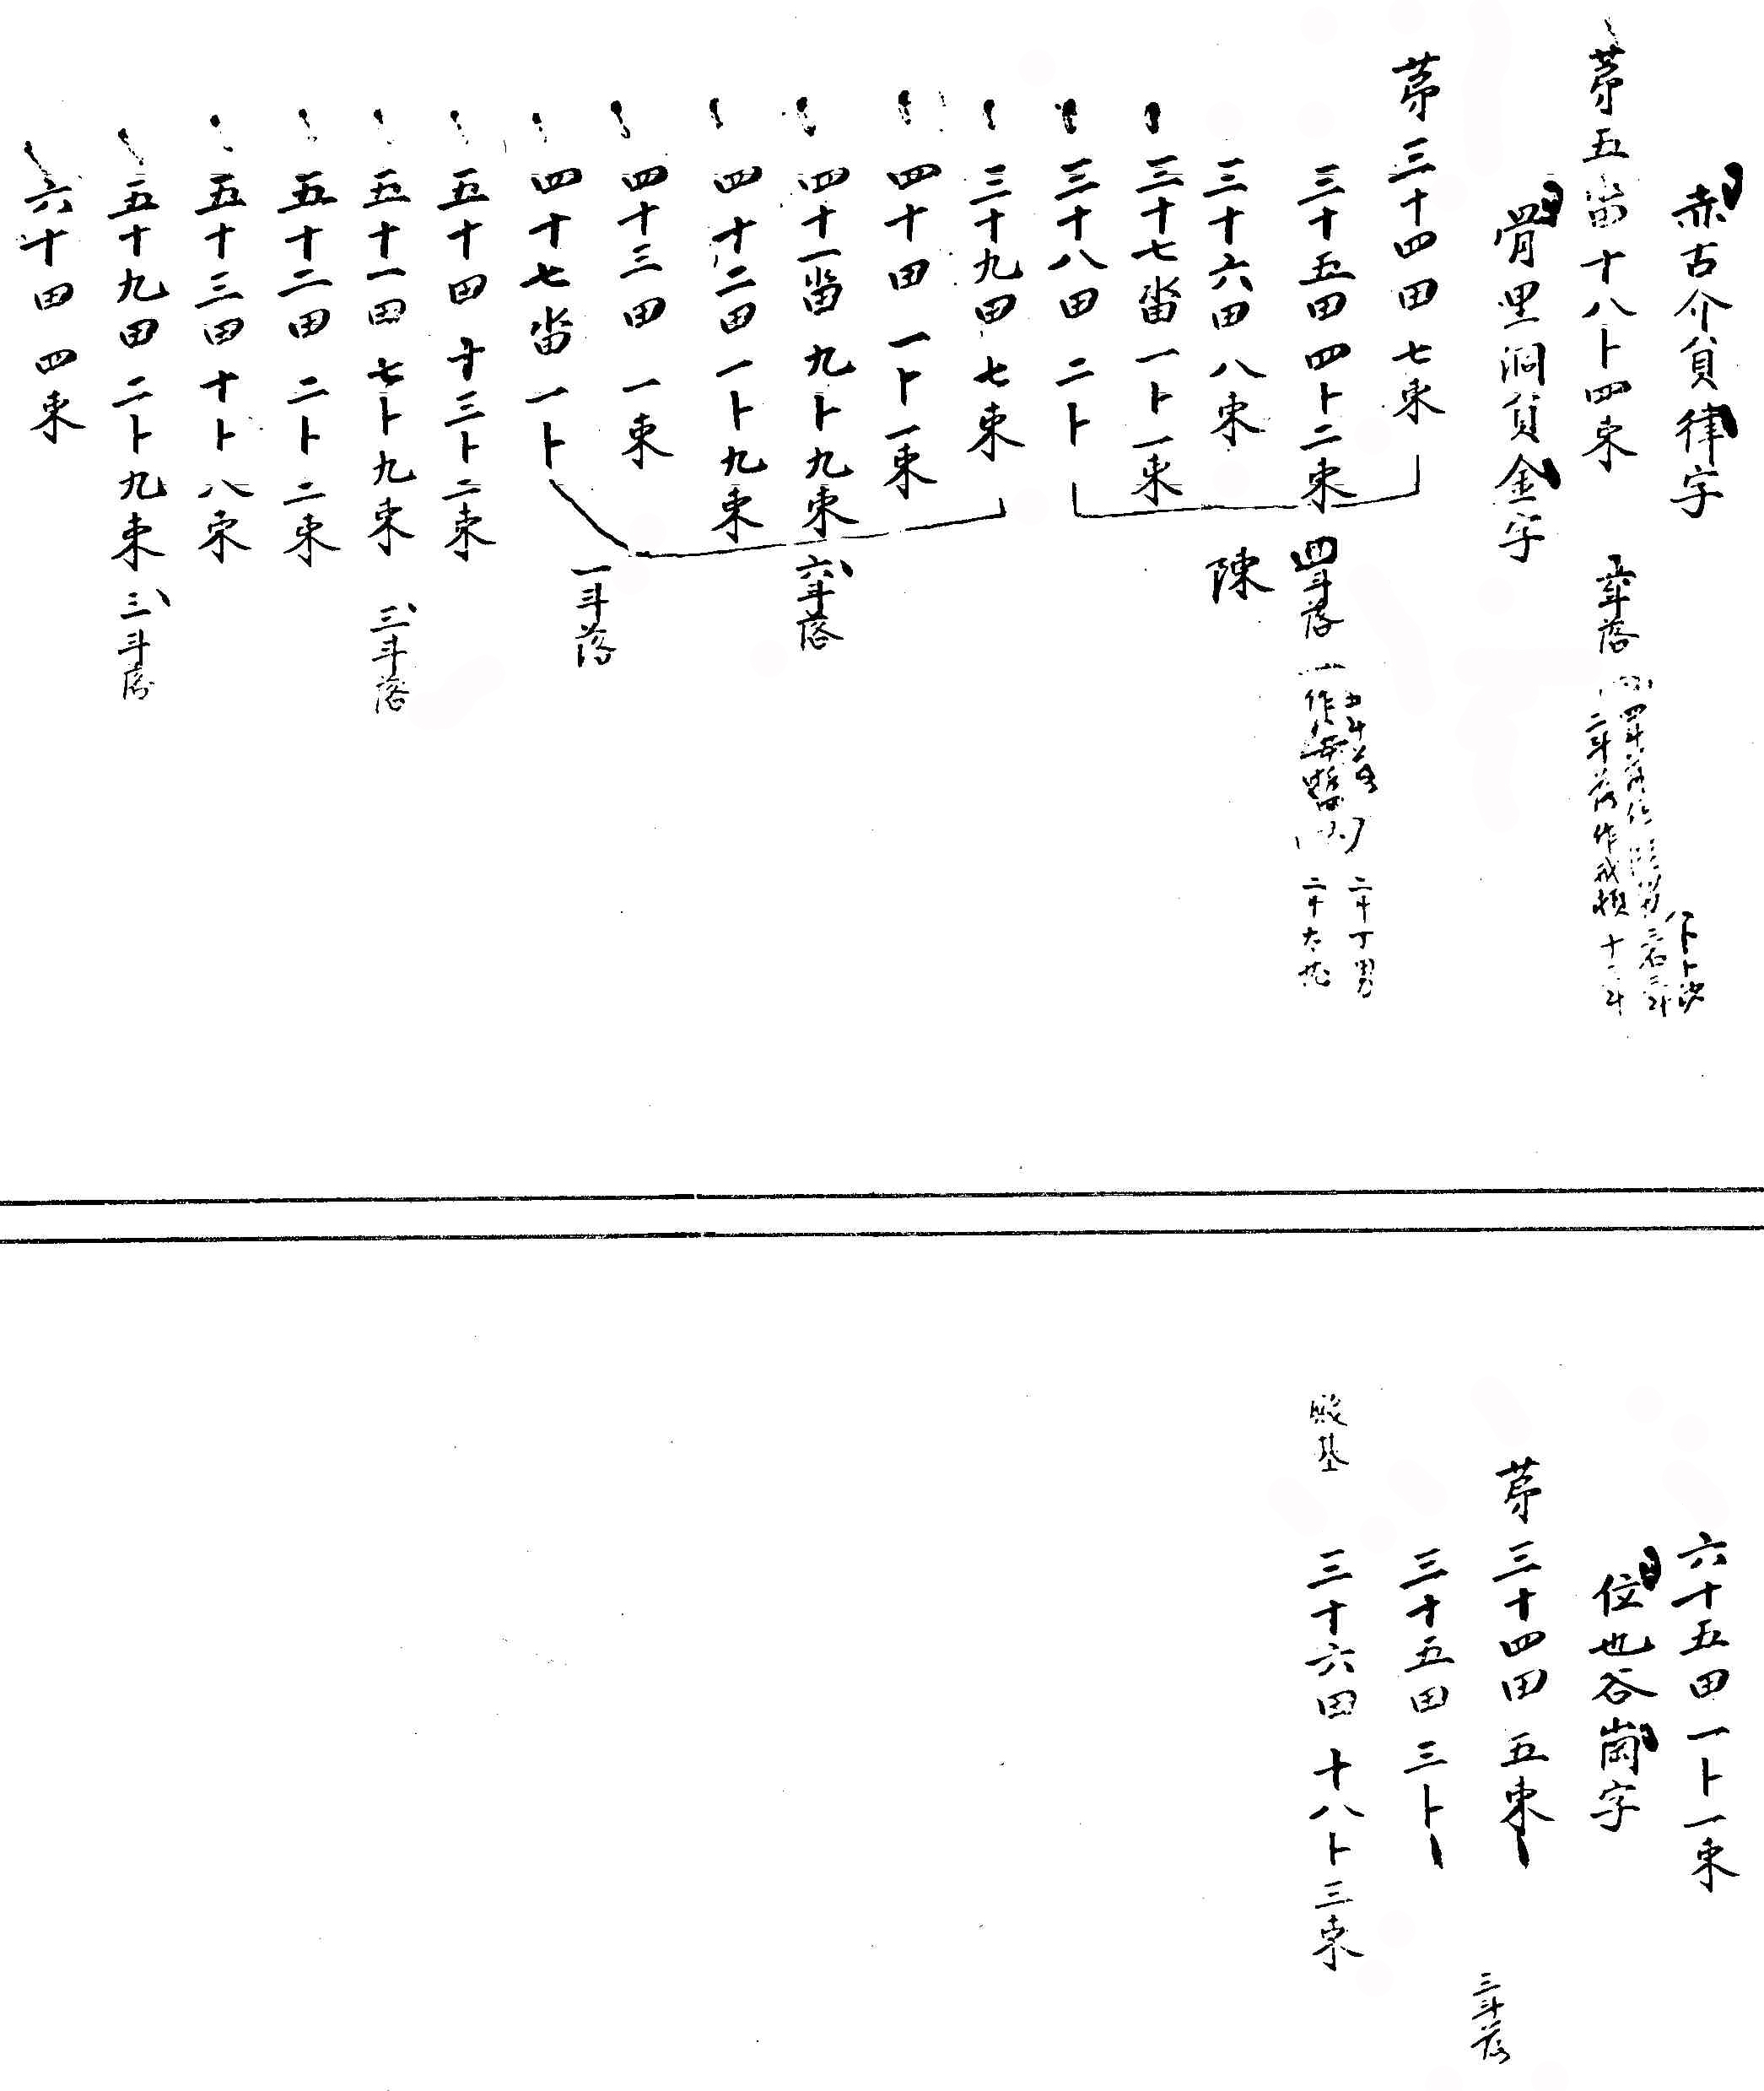 赤古介員律字
第五畓十八卜四束 六斗落
四斗落作
二斗落作
骨里洞員金字
第三十四田七束
三十五田四卜二束 四斗落
二斗丁男
三十六田八束 陳
三十七畓一卜一束
三十八田二卜
三十九田七束
四十田一卜一束
四十一畓九卜九束 六斗落
四十二田一卜九束
四十三田一束
四十七畓一卜 一斗落
五十田十三卜二束
五十一田七卜九束 三斗落
五十二田二卜二束
五十三田十卜八束
五十九田二卜九束 三斗落
六十田四束
六十五田一卜一束
位也谷員崗字
第三十四田五束
三斗落
三十五田三卜
基 三十六田十八卜三束